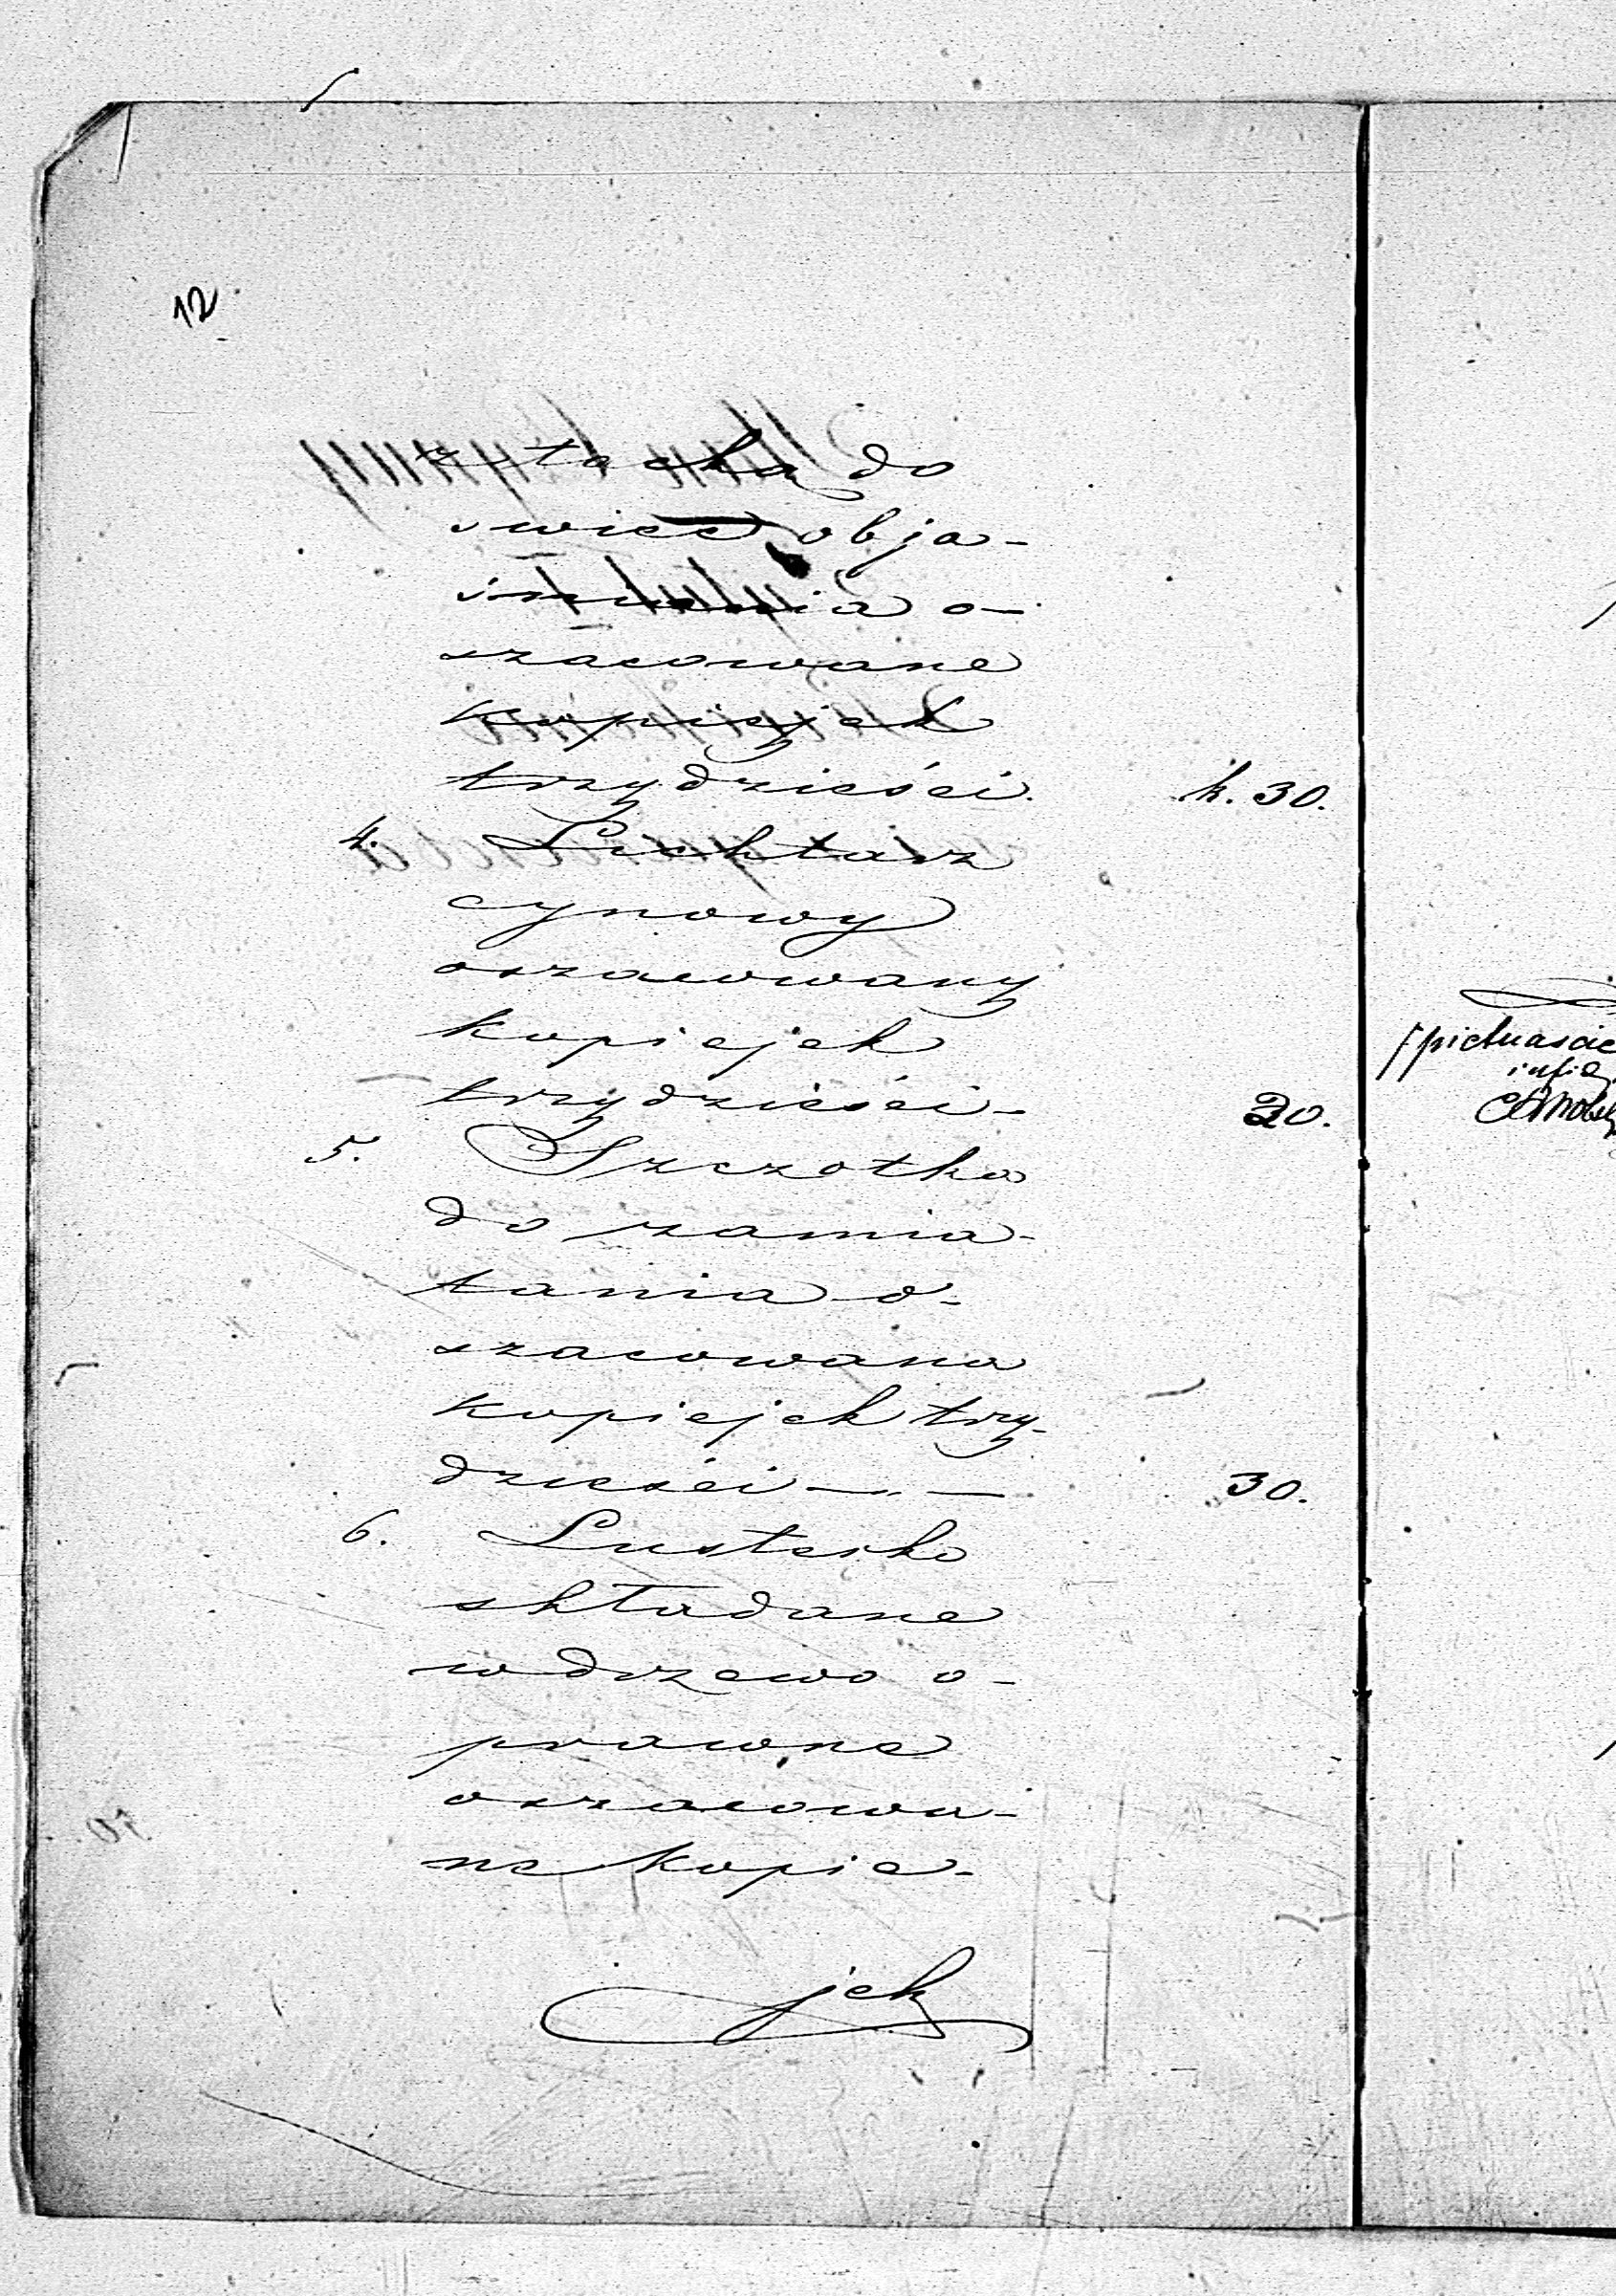 12
z tacką do
świec obja-
śnienia o-
szacowane
kopiejek
trzydzieści. k. 30.
4. Lichtarz
cynowy
oszacowany
kopiejek
trzydzieści- 30.
5. Szczotka
do zamia-
tania o-
szacowana
kopiejek trzy-
dzieści — 30.
6. Lusterko
składane
w drzewo o-
prawne
oszacowa-
ne kopie-
jek